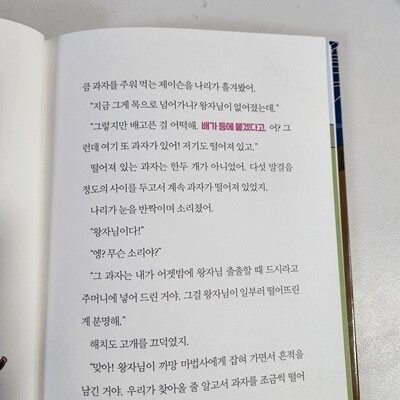 큼 과자를 주워 먹는 제이슨을 나리가 흘겨봤어.
“지금 그게 목으로 넘어가니? 왕자님이 없어졌는데.”
“그렇지만 배고픈 걸 어떡해. 배가 등에 붙겠다고. 어? 그
런데 여기 또 과자가 있어! 저기도 떨어져 있고.”
떨어져 있는 과자는 한두 개가 아니었어. 다섯 발걸음
정도의 사이를 두고서 계속 과자가 떨어져 있었지.
나리가 눈을 반짝이며 소리쳤어.
“왕자님이다!”
“엥? 무슨 소리야?”
“그 과자는 내가 어젯밤에 왕자님 출출할 때 드시라고
주머니에 넣어 드린 거야. 그걸 왕자님이 일부러 떨어뜨린
게 분명해.”
해치도 고개를 끄덕였지.
“맞아! 왕자님이 까망 마법사에게 잡혀 가면서 흔적을
남긴 거야. 우리가 찾아올 줄 알고서 과자를 조금씩 떨어